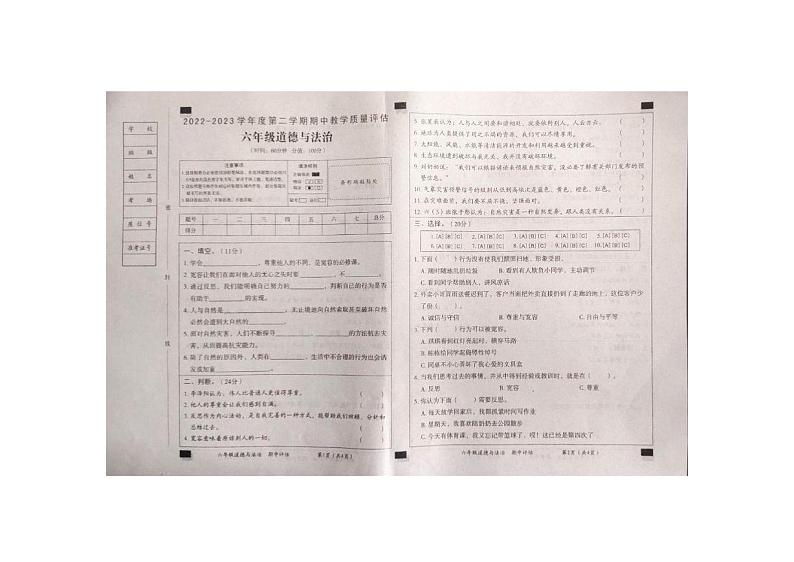 学 校
班 级
姓 名
考 场
座位号
准考证号
密
封
线
2022-2023学年度第二学期期中教学质量评估
六年级道德与法治
(时间：60分钟 分值：100分)
注意事项
填涂样例
条形码粘贴处
题号 一 二 三 四 五 六 七 总分
得分
一、填空。(11分)
1. 学会____________，尊重他人的不同，是宽容的必修课。
2. 宽容让我们在面对他人的无心之失时要____________，不________。
3. 通过反思，我们能明确自己努力的________，判断自己的行为是否
有助于________的实现。
4. 人与自然是____________，无止境地向自然索取甚至破坏自然
必然会遭到大自然的________。
5. 面对自然灾害，人们不断探寻________、________的方法抗击灾
害，从而提高抗灾能力。
6. 除了自然的原因外，人类在________、生活中不合理的行为也会引
发或加重____________。
二、判断。(24分)
1. 李洛阳认为，伟人比普通人更值得尊重。 ( )
2. 他人的尊重会让我们感到自满。 ( )
3. 反思作为内心活动，是自我完善的一种方式，能帮助我们理解、分析和
总结过去。 ( )
4. 宽容意味着原谅别人的一切。 ( )
六年级道德与法治 期中评估 第1页（共4页）
5. 张某认为：人与人之间要和谐相处，要依待别人，人云亦云。 ( )
6. 地球为人类提供了用之不尽的资源。 ( )
7. 太阳能、水能、潮汐能等清洁能源的开发和利用越来越受到重视。 ( )
8. 生态环境遭到破坏与自然无关，与人类活动有关。 ( )
9. 刘钥说：“我们可以根据谚语来预报自然灾害，没必要了解有关部门发布的预
警信息。” ( )
10. 气象灾害预警信号的级别从低到高依次是蓝色、黄色、橙色、红色。 ( )
11. 在灾难面前，我们要及不屈不挠、坚强面对。 ( )
12. 六（5）班张于想认为：自然灾害是一种自然现象，跟人类没有关系。 ( )
三、选择。(20分)
1. [A] [B] [C] 2. [A] [B] [C] 3. [A] [B] [C] 4. [A] [B] [C] 5. [A] [B] [C]
6. [A] [B] [C] 7. [A] [B] [C] 8. [A] [B] [C] 9. [A] [B] [C] 10. [A] [B] [C]
1. 下面（ ）行为没有使我们颜面扫地、形象受损。
A. 随时随地乱扔垃圾 B. 看到有人欺负小同学，主动调节
C. 看到同学帮助别人，讽风凉话
2. 外卖小哥冒雨送餐迟到了，客户当面把外卖直接扔到了走廊的地上，这位客户少
了份（ ）。
A. 诚信与守信 B. 尊重与宽容 C. 自由与平等
3. 下列（ ）行为可以被宽容。
A. 琪琪看到红灯亮起时，横穿马路
B. 栋栋给同学起侮辱性绰号
C. 同桌不小心弄坏了我心爱的文具盒
4. 当我们思考过去的事情，并从中总结经验或教训时，就是在（ ）。
A. 反思 B. 宽容 C. 尊重
5. 下面（ ）你认为需要反思。
A. 每天放学回家后，我都抓紧时间写作业
B. 星期天，我喜欢陪奶奶去公园散步
C. 今天有体育课，我又忘记带篮球了，哎！这已经是第四次了
六年级道德与法治 期中评估 第2页（共4页）